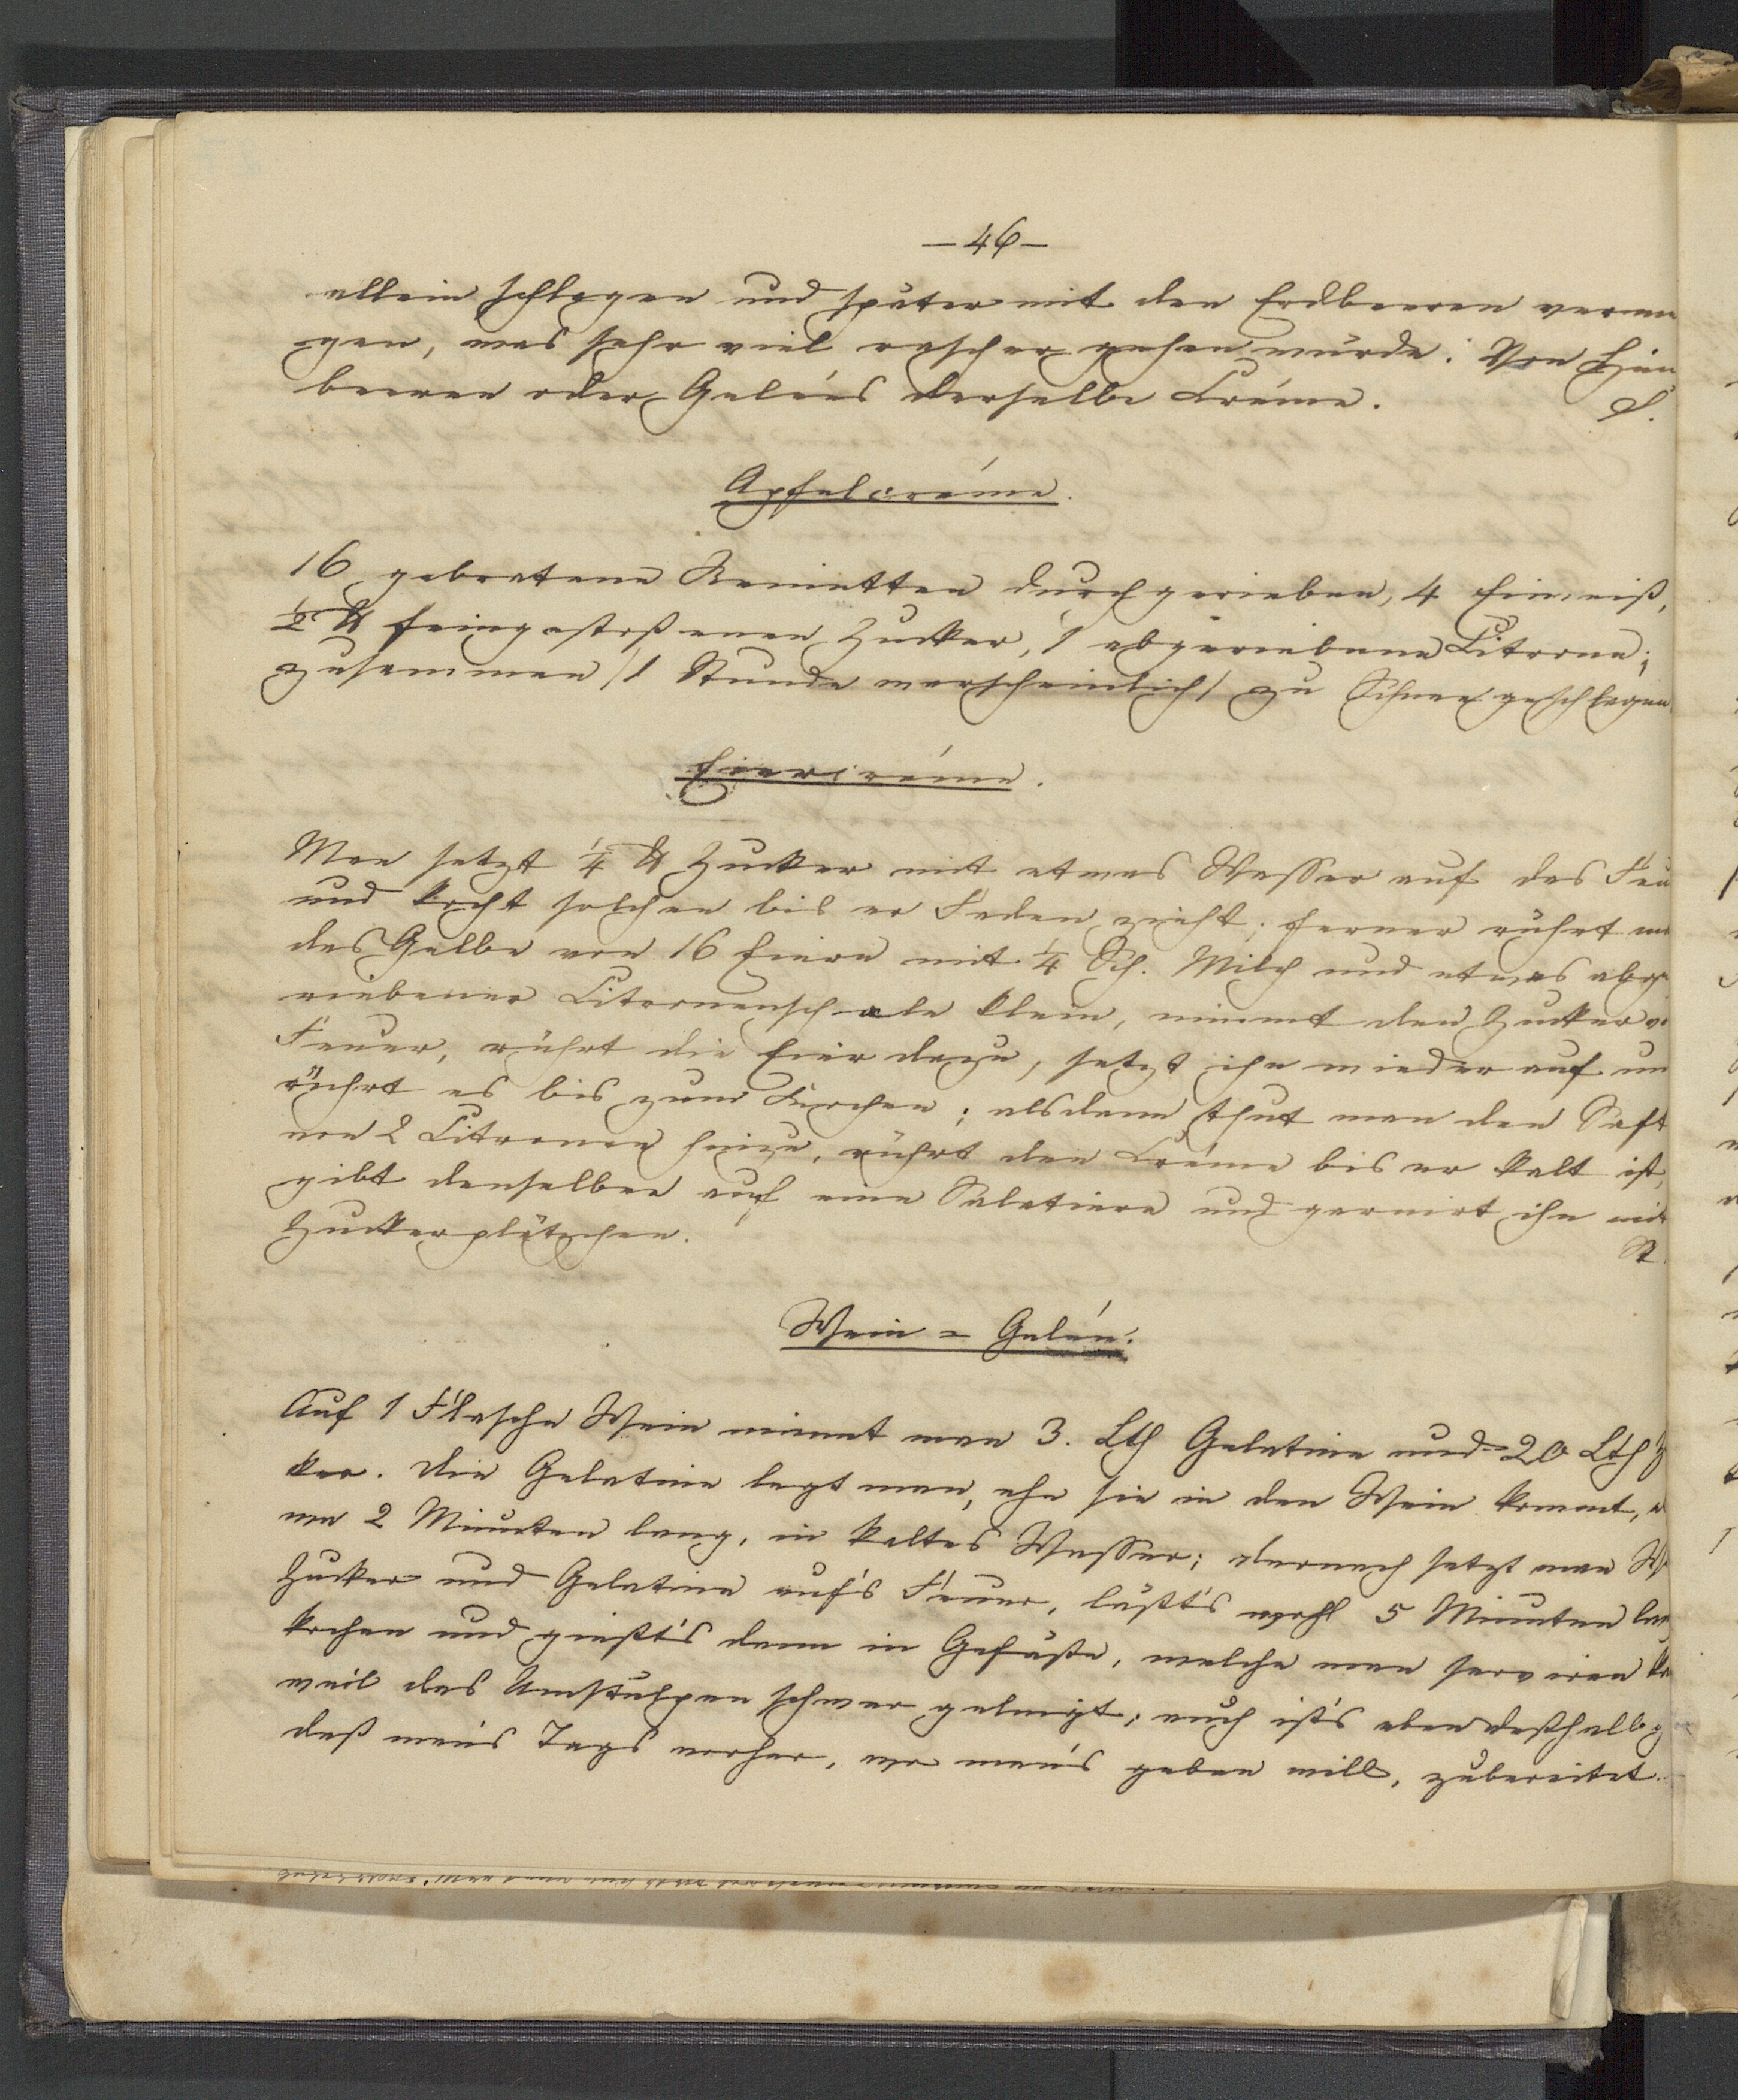 — 46 —
allein schlagen und später mit den Erdbeeren verme
gen, was sehr viel rascher gehen würde. Von Him
beeren oder Gelées derselbe Créme. S.
Apfelcréme.
16 gebratene Reinetten durchgerieben, 4 Eiweiß,
½ ℔ feingestoßenen Zucker, 1 abgeriebene Citrone;
zusammen /1 Stunde warscheinlich/ zu Schnee geschlagen.
Eiercréme.
Man setzt ¼ ℔ Zucker mit etwas Wasser auf das Feu
und kocht solchen bis er Faden zieht; ferner rührt m
das Gelbe von 16 Eiern mit ¼ Sch. Milch und etwas abge
riebener Citronenschale klein, nimmt den Zucker v
Feuer, rührt die Eier dazu, setzt ihn wieder auf un
rührt es bis zum Kochen; alsdann thut man den Saft
von 2 Citronen hinzu, rührt den Créme bis er kalt ist,
gibt denselben auf eine Salatiere und garnirt ihn mit
Zuckerplätzchen. St.
Wein = Gelée.
Auf 1 Flasche Wein nimmt man 3. Lth Gelatine und 20 Lth Z
ker. Die Gelatine legt man, ehe sie in den Wein kommt,
wa 2 Minuten lang, in kaltes Wasser; darnach setzt man W
Zucker und Gelatine auf's Feuer, läßt's wohl 5 Minuten lan
kochen und gießt's dann in Gefäße, welche man serviren ka
weil das Umstülpen schwer gelingt; auch ist's eben deßhalb g
daß man's Tags vorher, wo man's geben will, zubereitet.